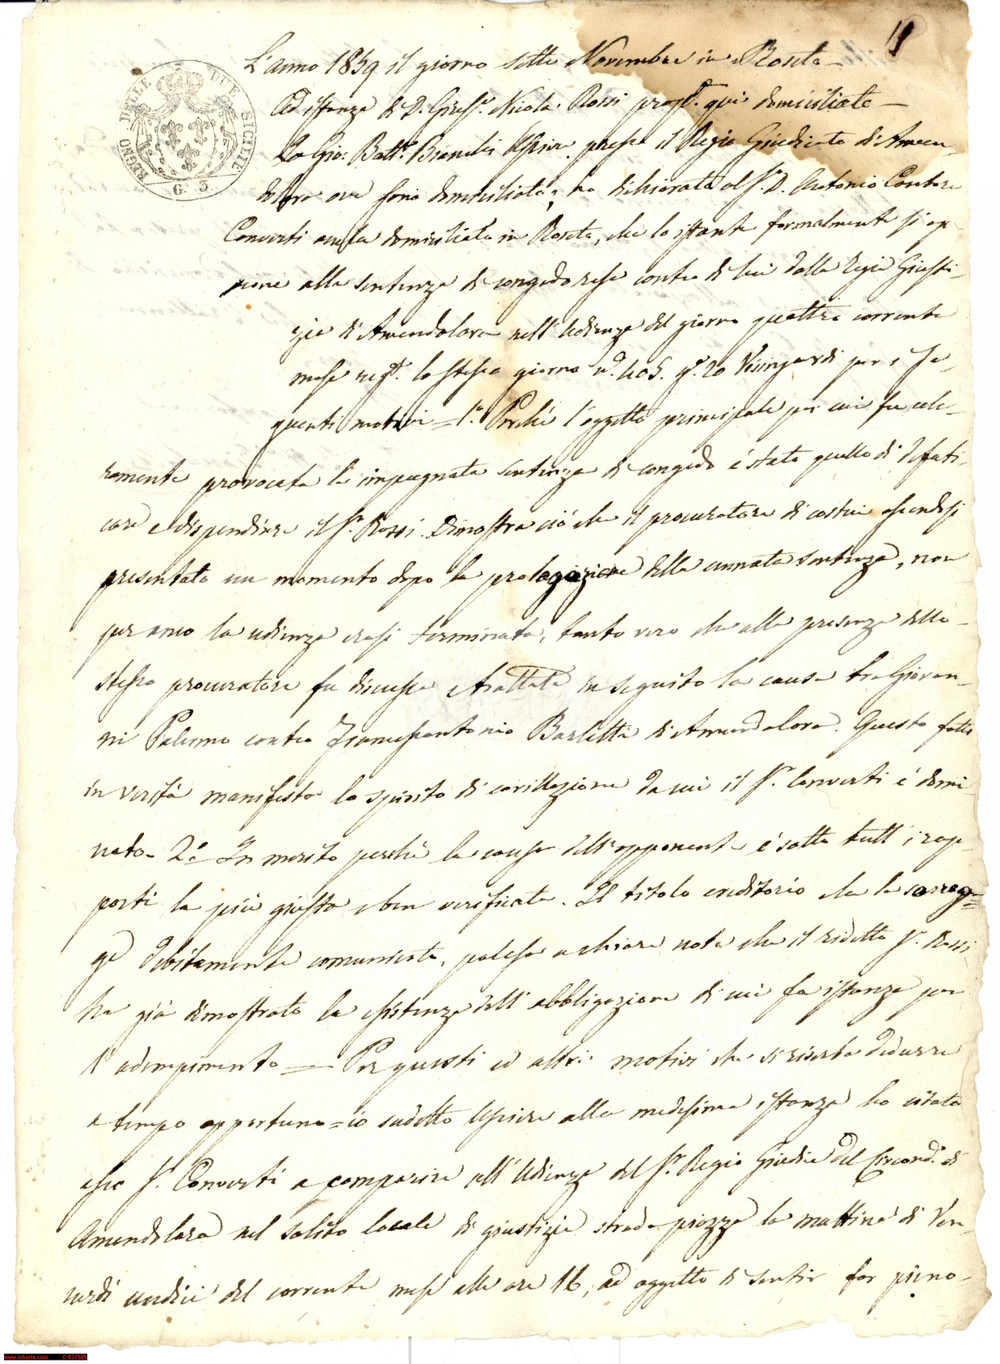 11
REGNO DELLE DUE SICILIE
G. 3
L'anno 1859 il giorno sette Novembre in Roseto
Ad istanza di D. Nicola Rossi qui domiciliato
Io Gio: Batt.ª Usciere presso il Regio Giudicato di Amen-
dolara ove sono domiciliato, ho dichiarato al S.r D. Antonio
Converti anche domiciliato in Roseto, che lo istante formalmente si op-
pone alla sentenza di congedo resa contro di lui dalla Regia Giusti-
zia di Amendolara nell'Udienza del giorno quattro corrente
mese reg.ta lo stesso giorno per i se-
guenti motivi = 1.º Perché l'oggetto principale per cui fu cele-
ramente provocata la impugnata sentenza di congedo è stato quello di defati-
care e dispendiare il S.r Rossi. Dimostra ciò che il procuratore di costui essendosi
presentato un momento dopo la della sentenza, non
per anco la udienza erasi terminata, tanto vero che alla presenza dello
stesso procuratore fu discussa e trattata in seguito la causa tra Giovan-
ni Palermo contro Francescantonio Barletta di Amendolara. Questo fatto
in verità manifesta lo spirito di da cui il S.r Converti è domi-
nato = 2.º In merito perché la causa dell'opponente è sotto tutt'i rap-
porti la più giusta e ben verificata. Il titolo creditorio che la sorreg-
ge debitamente comunicato, palesa a chiare note che il ridetto S.r Rossi
ha già dimostrato la esistenza dell'obbligazione di cui fa istanza per
l'adempimento = Per questi ed altri motivi che si riserba dedurre
a tempo opportuno = io sudetto Usciere alla medesima istanza ho citato
esso S.r Converti a comparire all'Udienza del S.r Regio Giudice del Circond.º di
Amendolara nel solito locale di giustizia strada piazza la mattina di Ven-
nerdì undici del corrente mese alle ore 16, ad oggetto di sentir far pieno-
www.ticharta.com C:837585